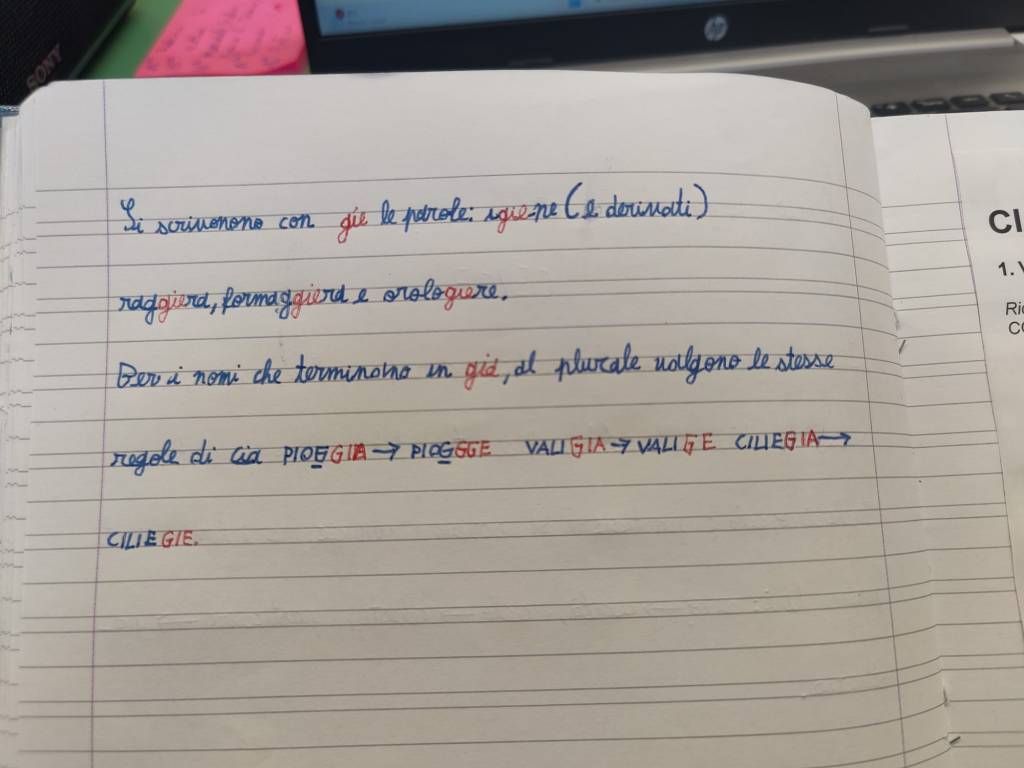 SONY
hp
Si scrivonono con gie le parole: igiene (e derivati)
raggiera, formaggiera e orologiere.
Per i nomi che terminono in gia, al plurale valgono le stesse
regole di cia PIOGGIA → PIOGGGE VALIGIA → VALIGE CILIEGIA →
CILIEGIE.
CI
1.